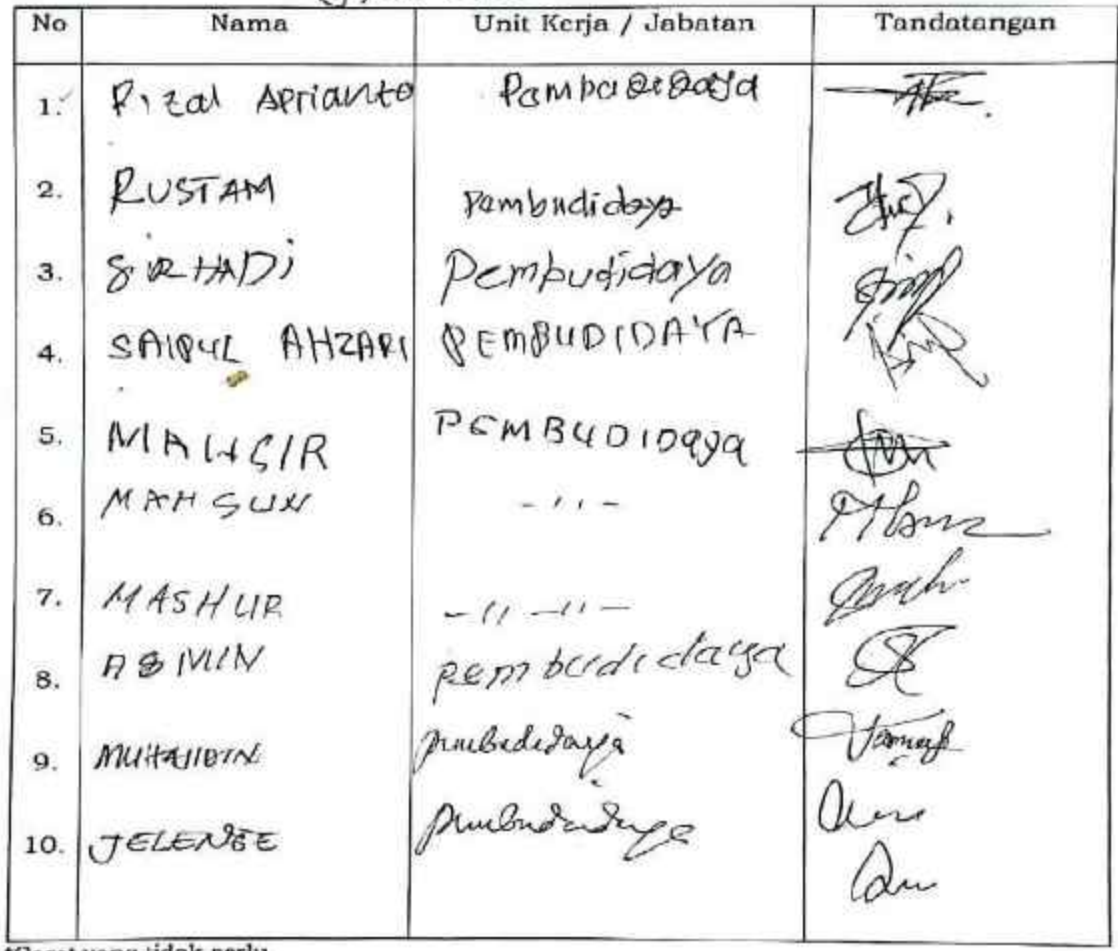 No Nama Unit Kerja / Jabatan Tandatangan
1. Rizal Aprianto Pembudidaya
2. RUSTAM Pembudidaya
3. SIRHADI Pembudidaya
4. SAIPUL AHZARI PEMBUDIDAYA
5. PEMBUDIDaya
6. MAHSUN - 11 -
7. MASHUR - 11 - 11 -
8. ASMIN pembudidaya
9. pembudidaya
10. pembudidaya
yang tidak perlu